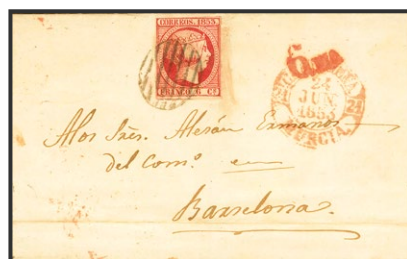 CORREOS. 1853.
FRANCO. 6 Cs
24
JUN.
MURCIA.
A los Sres. Alesán Ermanos
del Como. en
Barzelona.